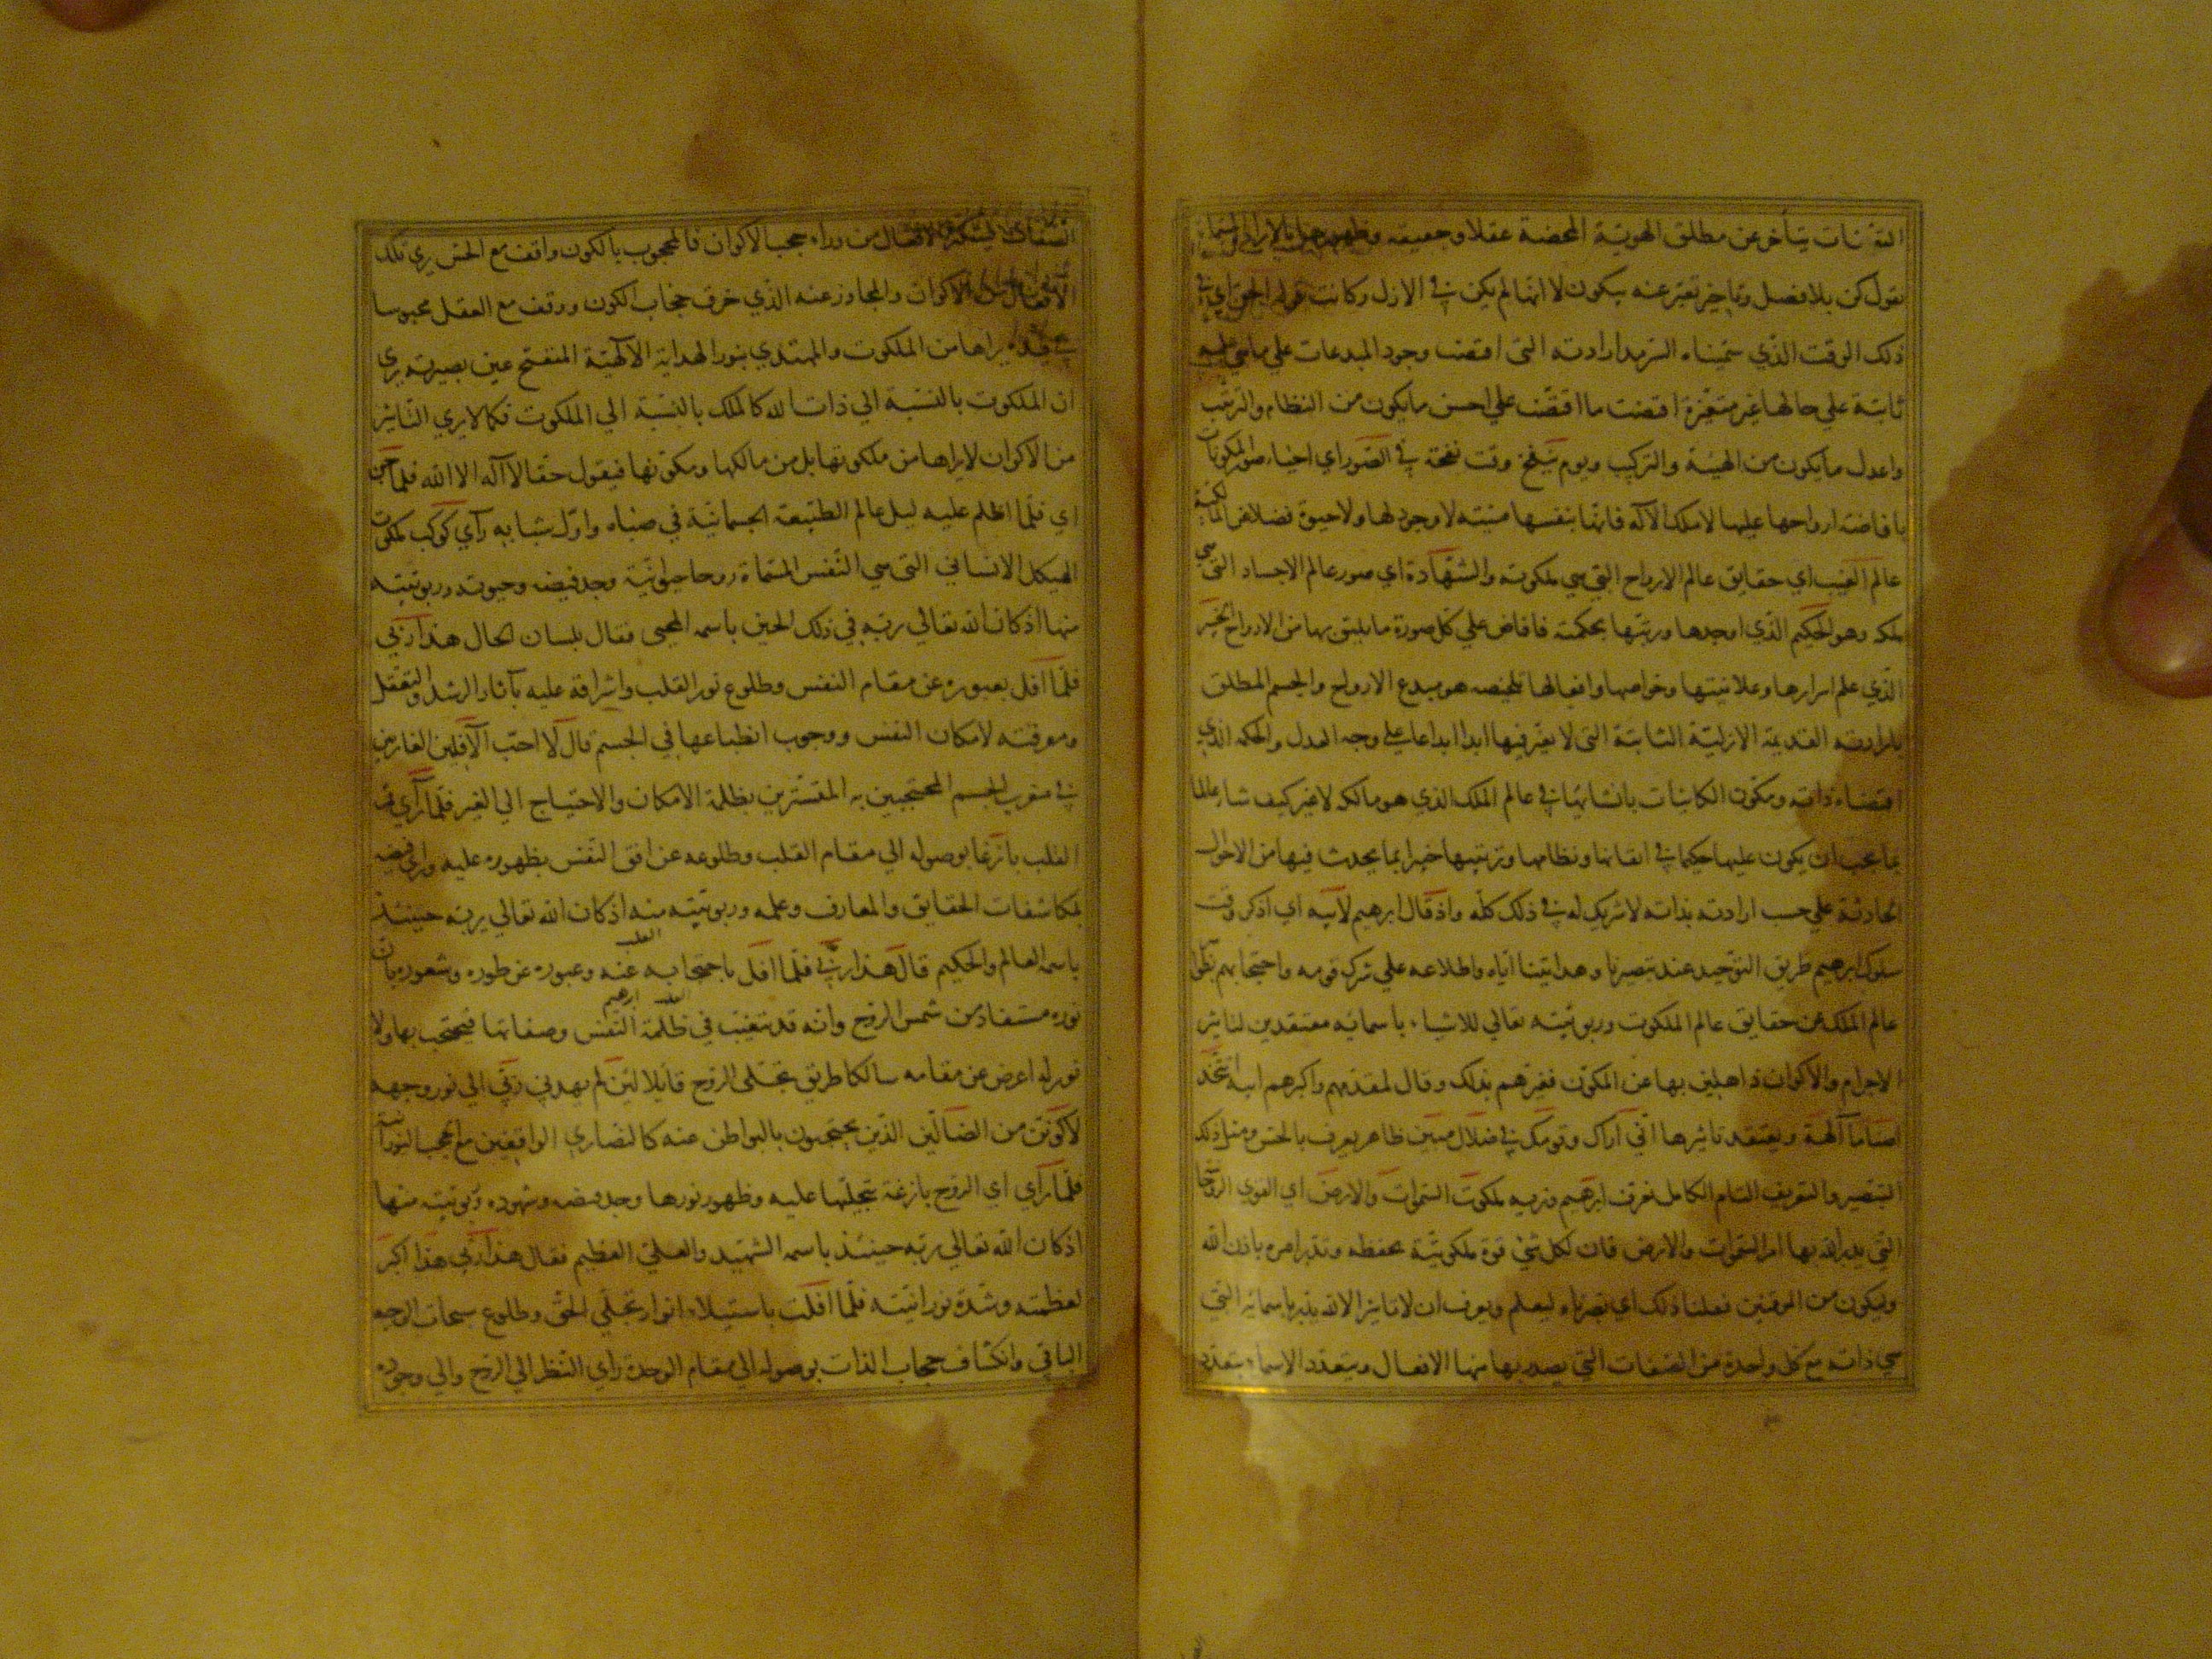 التعينات يتأخر عن مطلق الهوية المحضة عقلا وحقيقة وظهورها بالارادة المسماة
بقول كن بلا فصل وتأخير تعبر عنه بيكون لا انها لم يكن في الازل وكانت قوله الحق اي في
ذلك الوقت الذي سميناه السرمد ارادته التي اقتضت وجود المبدعات علي ما هي عليه
ثابتة علي حالها غير متغيرة اقتضت ما اقتضت علي احسن ما يكون من النظام والترتيب
واعدل ما يكون من الهيئة والتركيب ويوم ينفخ وقت نفخه في الصور اي احياء صور المكونات
بافاضة ارواحها عليها لا ملك الا له فانها بنفسها ميتة لا وجود لها ولا حيوة فضلا عن المالكية
عالم الغيب اي حقايق عالم الارواح التي هي ملكوته والشهادة اي صور عالم الاجساد التي هي
ملكه وهو الحكيم الذي اوجدها ورتبها بحكمته فافاض علي كل صورة ما يليق بها من الارواح الخبير
الذي علم اسرارها وعلانيتها وخواصها وافعالها تلخيصه هو مبدع الارواح والجسم المطلق
بارادته القديمة الازلية الثابتة التي لا تغير فيها ابدا ابداعا علي وجه العدل والحكمة الذي
اقتضاه ذاته ومكون الكاينات بانشائها في عالم الملك الذي هو مالكه لا غير كيف شاء عالما
بما يجب ان يكون عليها حكيما في اتقانها ونظامها وترتيبها خبيرا بما يحدث فيها من الاحوال
الحادثة علي حسب ارادته بذاته لا شريك له في ذلك كله واذ قال ابرهيم لابيه اي اذكر وقت
سلوك ابرهيم طريق التوحيد عند تبصيرنا وهدايتنا اياه واطلاعه علي شرك قومه واحتجابهم بظواهر
عالم الملك عن حقايق عالم الملكوت وربوبيته تعالي للاشياء باسمائه معتقدين لتاثير
الاجرام والاكوان ذاهلين بها عن المكون فعيرهم بذلك وقال لمقدمهم واكبرهم ابيه اتتخذ
اصناما آلهة ويعتقد تاثيرها اني اراك وقومك في ضلال مبين ظاهر يعرف بالحس ومثل ذلك
التبصير والتعريف التام الكامل نعرف ابرهيم ونريه ملكوت السموات والارض اي القوي الروحانية
التي يدبر الله بها امر السموات والارض فان لكل شئ قوة ملكوتية تحفظه وتدبر امره باذن الله
وليكون من الموقنين فعلنا ذلك اي بصرناه ليعلم ويعرف ان لا تاثير الا لله يدبر باسمائه التي
هي ذاته مع كل واحدة من الصفات التي يصدر بها منها الافعال ويتعدد الاسماء بتعدد
من وراء حجب الاكوان فالمحجوب بالكون واقف مع الحس يري تلك
الافعال من الاكوان والمجاوز عنه الذي خرق حجاب الكون ووقف مع العقل محبوسا
في قيده يراها من الملكوت والمهتدي بنور الهداية الآلهية المنفتح عين بصيرته يري
ان الملكوت بالنسبة الي ذات الله كالملك بالنسبة الي الملكوت فكما لا يري التاثير
من الاكوان لا يراها من ملكوتها بل من مالكها ومكونها فيقول حقا لا آله الا الله فلما جن
اي فلما اظلم عليه ليل عالم الطبيعة الجسمانية في صباه واول شبابه رآي كوكب ملكوت
الهيكل الانساني التي هي النفس المسماة روحا حيوانية وجد فيضه وحيوته وربوبيته
منها اذ كان الله تعالي ربه في ذلك الحين باسمه المحيي فقال بلسان الحال هذا ربي
فلما افل بعبوره عن مقام النفس وطلوع نور القلب واشراقه عليه بآثار الرشد والتعقل
ومعرفته لامكان النفس ووجوب انطباعها في الجسم قال لا احب الآفلين الغاربين
في مغرب الجسم المحتجبين به المتسترين بظلمة الامكان والاحتياج الي الغير فلما رآي قمر
القلب بازغا بوصوله الي مقام القلب وطلوعه عن افق النفس بظهوره عليه وراي فيضه
بمكاشفات الحقايق والمعارف وعلمه وربوبيته منه اذ كان الله تعالي يربه حينئذ
باسمه العالم والحكيم قال هذا ربي فلما افل باحتجابه عنه وعبوره عن طوره وشعوره بان
نوره مستفاد من شمس الروح وانه قد يتغيب في ظلمة النفس وصفاتها فيحتجب بها ولا
نور له اعرض عن مقامه سالكا طريق تجلي الروح قايلا لئن لم يهدني ربي الي نور وجهه
لاكونن من الضالين الذين يحتجبون بالبواطن عنه كالنصاري الواقفين مع الحجب النورانية
فلما رآي اي الروح بازغة بتجليها عليه وظهور نورها وجد فيضه وشهوده وربوبيته منها
اذ كان الله تعالي يربه حينئذ باسمه الشهيد والعلي العظيم فقال هذا ربي هذا اكبر
لعظمته وشدة نورانيته فلما افلت باستيلاء انوار تجلي الحق وطلوع سبحات الوجه
الباقي وانكشاف حجاب الذات بوصوله الي مقام الوحدة راي النظر الي الروح والي وجوده